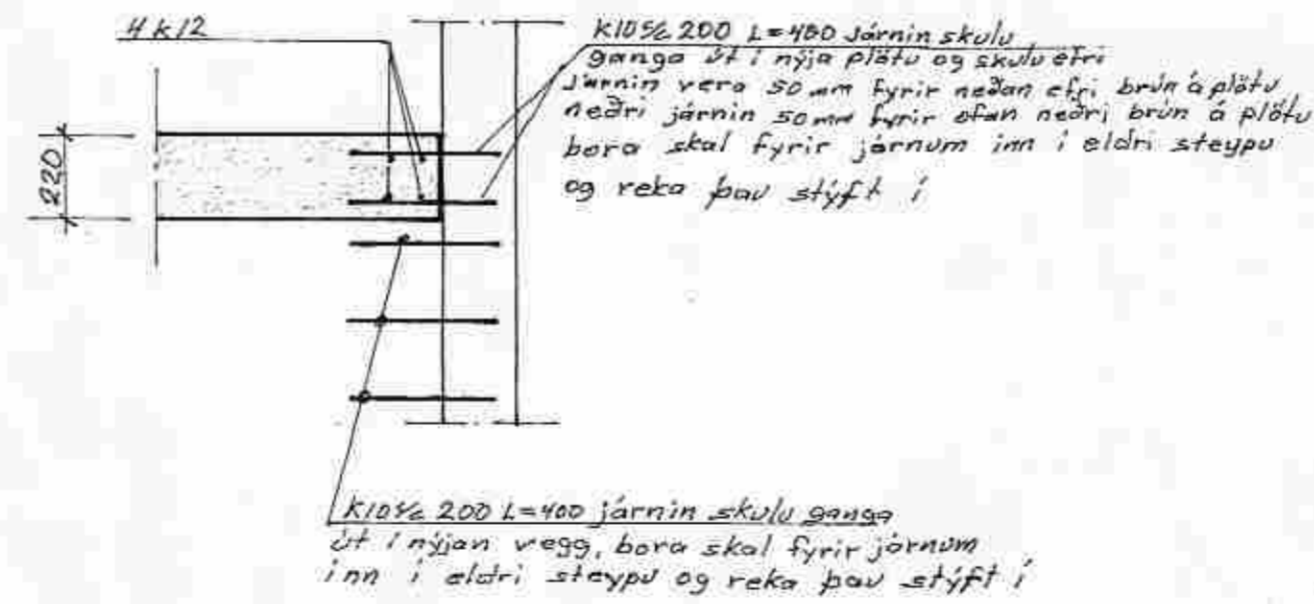 4 k12
k10 s/c 200 L=400 Járnin skulu
ganga út í nýja plötu og skulu efri
Járnin vera 50 mm fyrir neðan efri brún á plötu
neðri járnin 50 mm fyrir ofan neðri brún á plötu
bora skal fyrir járnum inn í eldri steypu
og reka þau stýft í
220
k10 s/c 200 L=400 járnin skulu ganga
út í nýjan vegg, bora skal fyrir járnum
inn í eldri steypu og reka þau stýft í